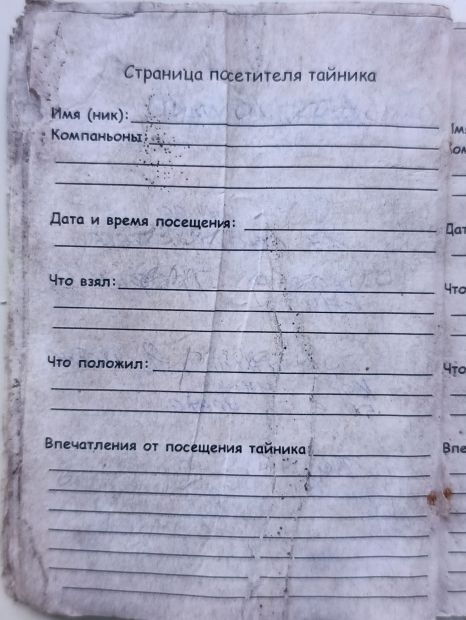 Страница посетителя тайника
Имя (ник):
Компаньоны:
Дата и время посещения:
Что взял:
Что положил:
Впечатления от посещения тайника:
Дат
Что
Что
Впе